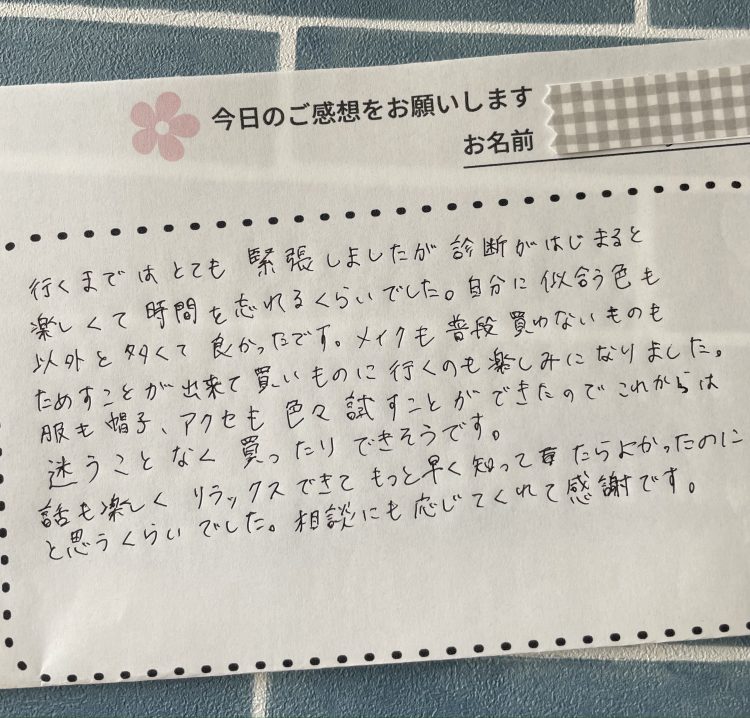 今日のご感想をお願いします
お名前
行くまではとても緊張しましたが診断がはじまると
楽しくて時間を忘れるくらいでした。自分に似合う色も
以外と多くて良かったです。メイクも普段買わないものも
ためすことが出来て買いものに行くのも楽しみになりました。
服も帽子、アクセも色々試すことができたのでこれからは
迷うことなく買ったりできそうです。
話も楽しくリラックスできてもっと早く知ってたらよかったのに
と思うくらいでした。相談にも応じてくれて感謝です。